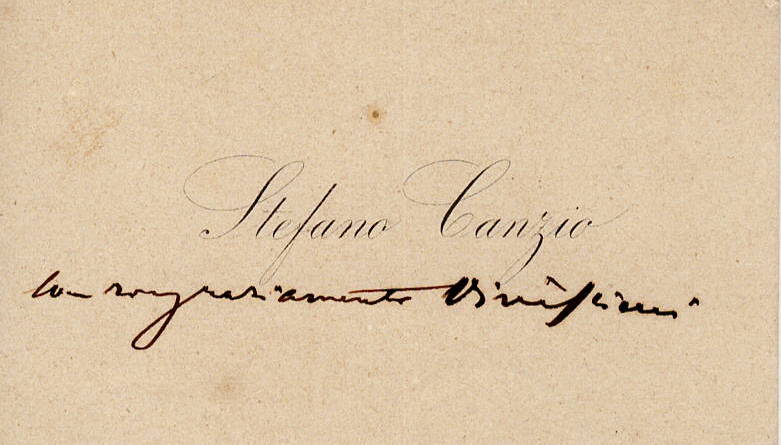 Stefano Canzio
con ringraziamento vivissimi